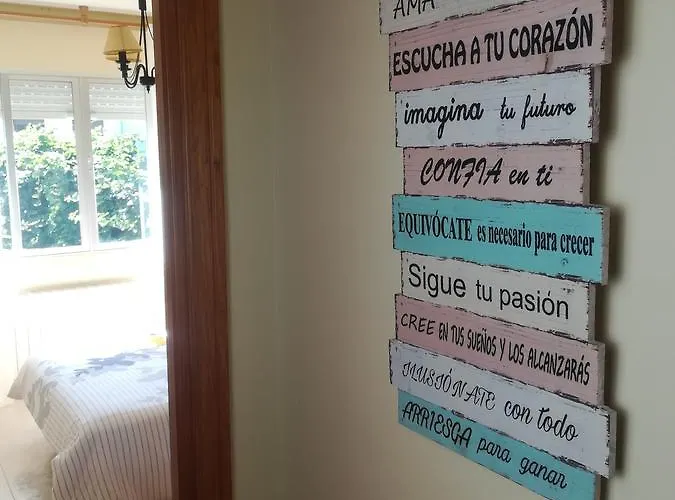 AMA
ESCUCHA A TU CORAZÓN
imagina tu futuro
CONFIA en ti
EQUIVÓCATE es necesario para crecer
Sigue tu pasión
CREE EN TUS SUEÑOS Y LOS ALCANZARÁS
ILUSIÓNATE con todo
ARRIESGA para ganar